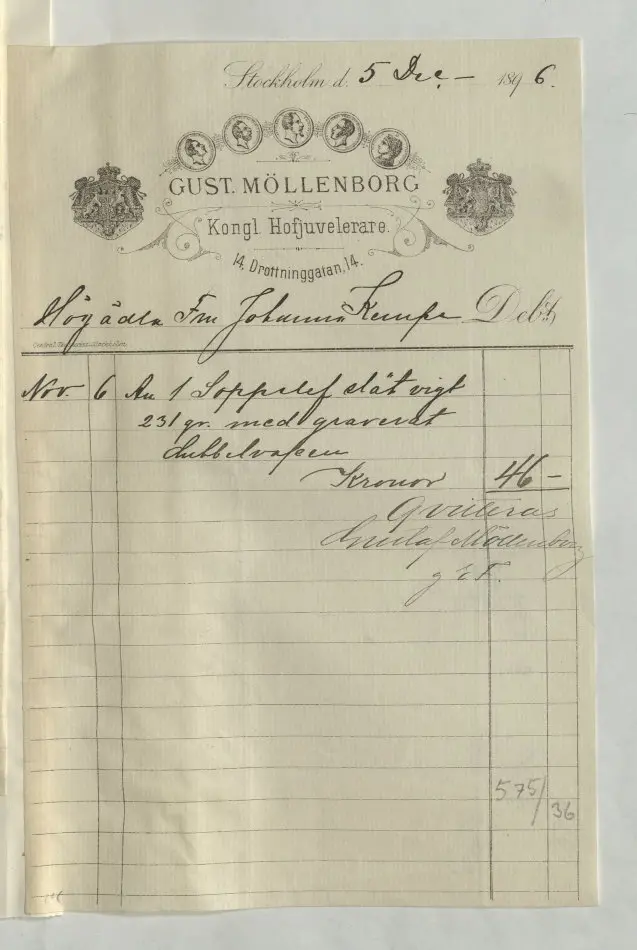 Stockholm d. 5 Dec. – 1896.
GUST. MÖLLENBORG
Kongl. Hofjuvelerare.
14, Drottninggatan, 14.
Högädla Fru Johanna Kempe Debt
Nov. 6 An 1 Soppslef slät vigt
231 gr. med graverat
dubbelvapen
Kronor 46 –
Qvitteras
Gustaf Möllenborg
g E.F.
575/
36